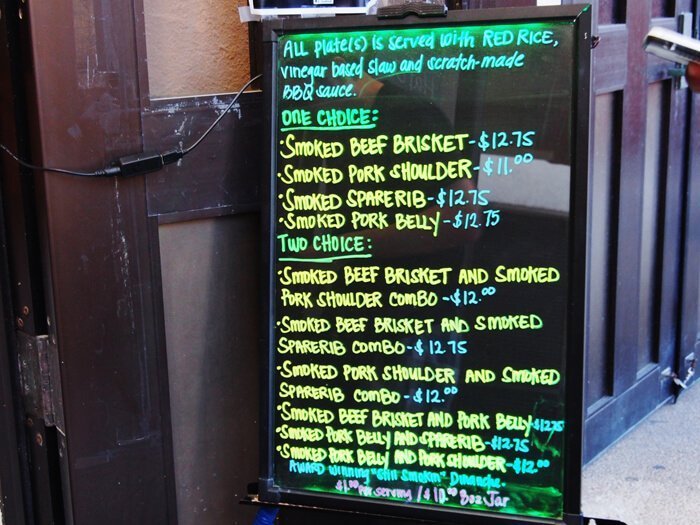 ALL Plate(s) is served with RED RICE,
vinegar based slaw and scratch-made
BBQ sauce.
ONE CHOICE:
·SMOKED BEEF BRISKET-$12.75
·SMOKED PORK SHOULDER-$11.00
·SMOKED SPARERIB-$12.75
·SMOKED PORK BELLY-$12.75
TWO CHOICE:
·SMOKED BEEF BRISKET AND SMOKED
PORK SHOULDER COMBO-$12.00
·SMOKED BEEF BRISKET AND SMOKED
SPARERIB COMBO-$12.75
·SMOKED PORK SHOULDER AND SMOKED
SPARERIB COMBO-$12.00
·SMOKED BEEF BRISKET AND PORK BELLY-$12.75
·SMOKED PORK BELLY AND SPARERIB-$12.75
·SMOKED PORK BELLY AND PORK SHOULDER-$12.00
AWARD winning "Still Smokin" Dinanche.
$1.00 Per serving / $10.00 8oz Jar